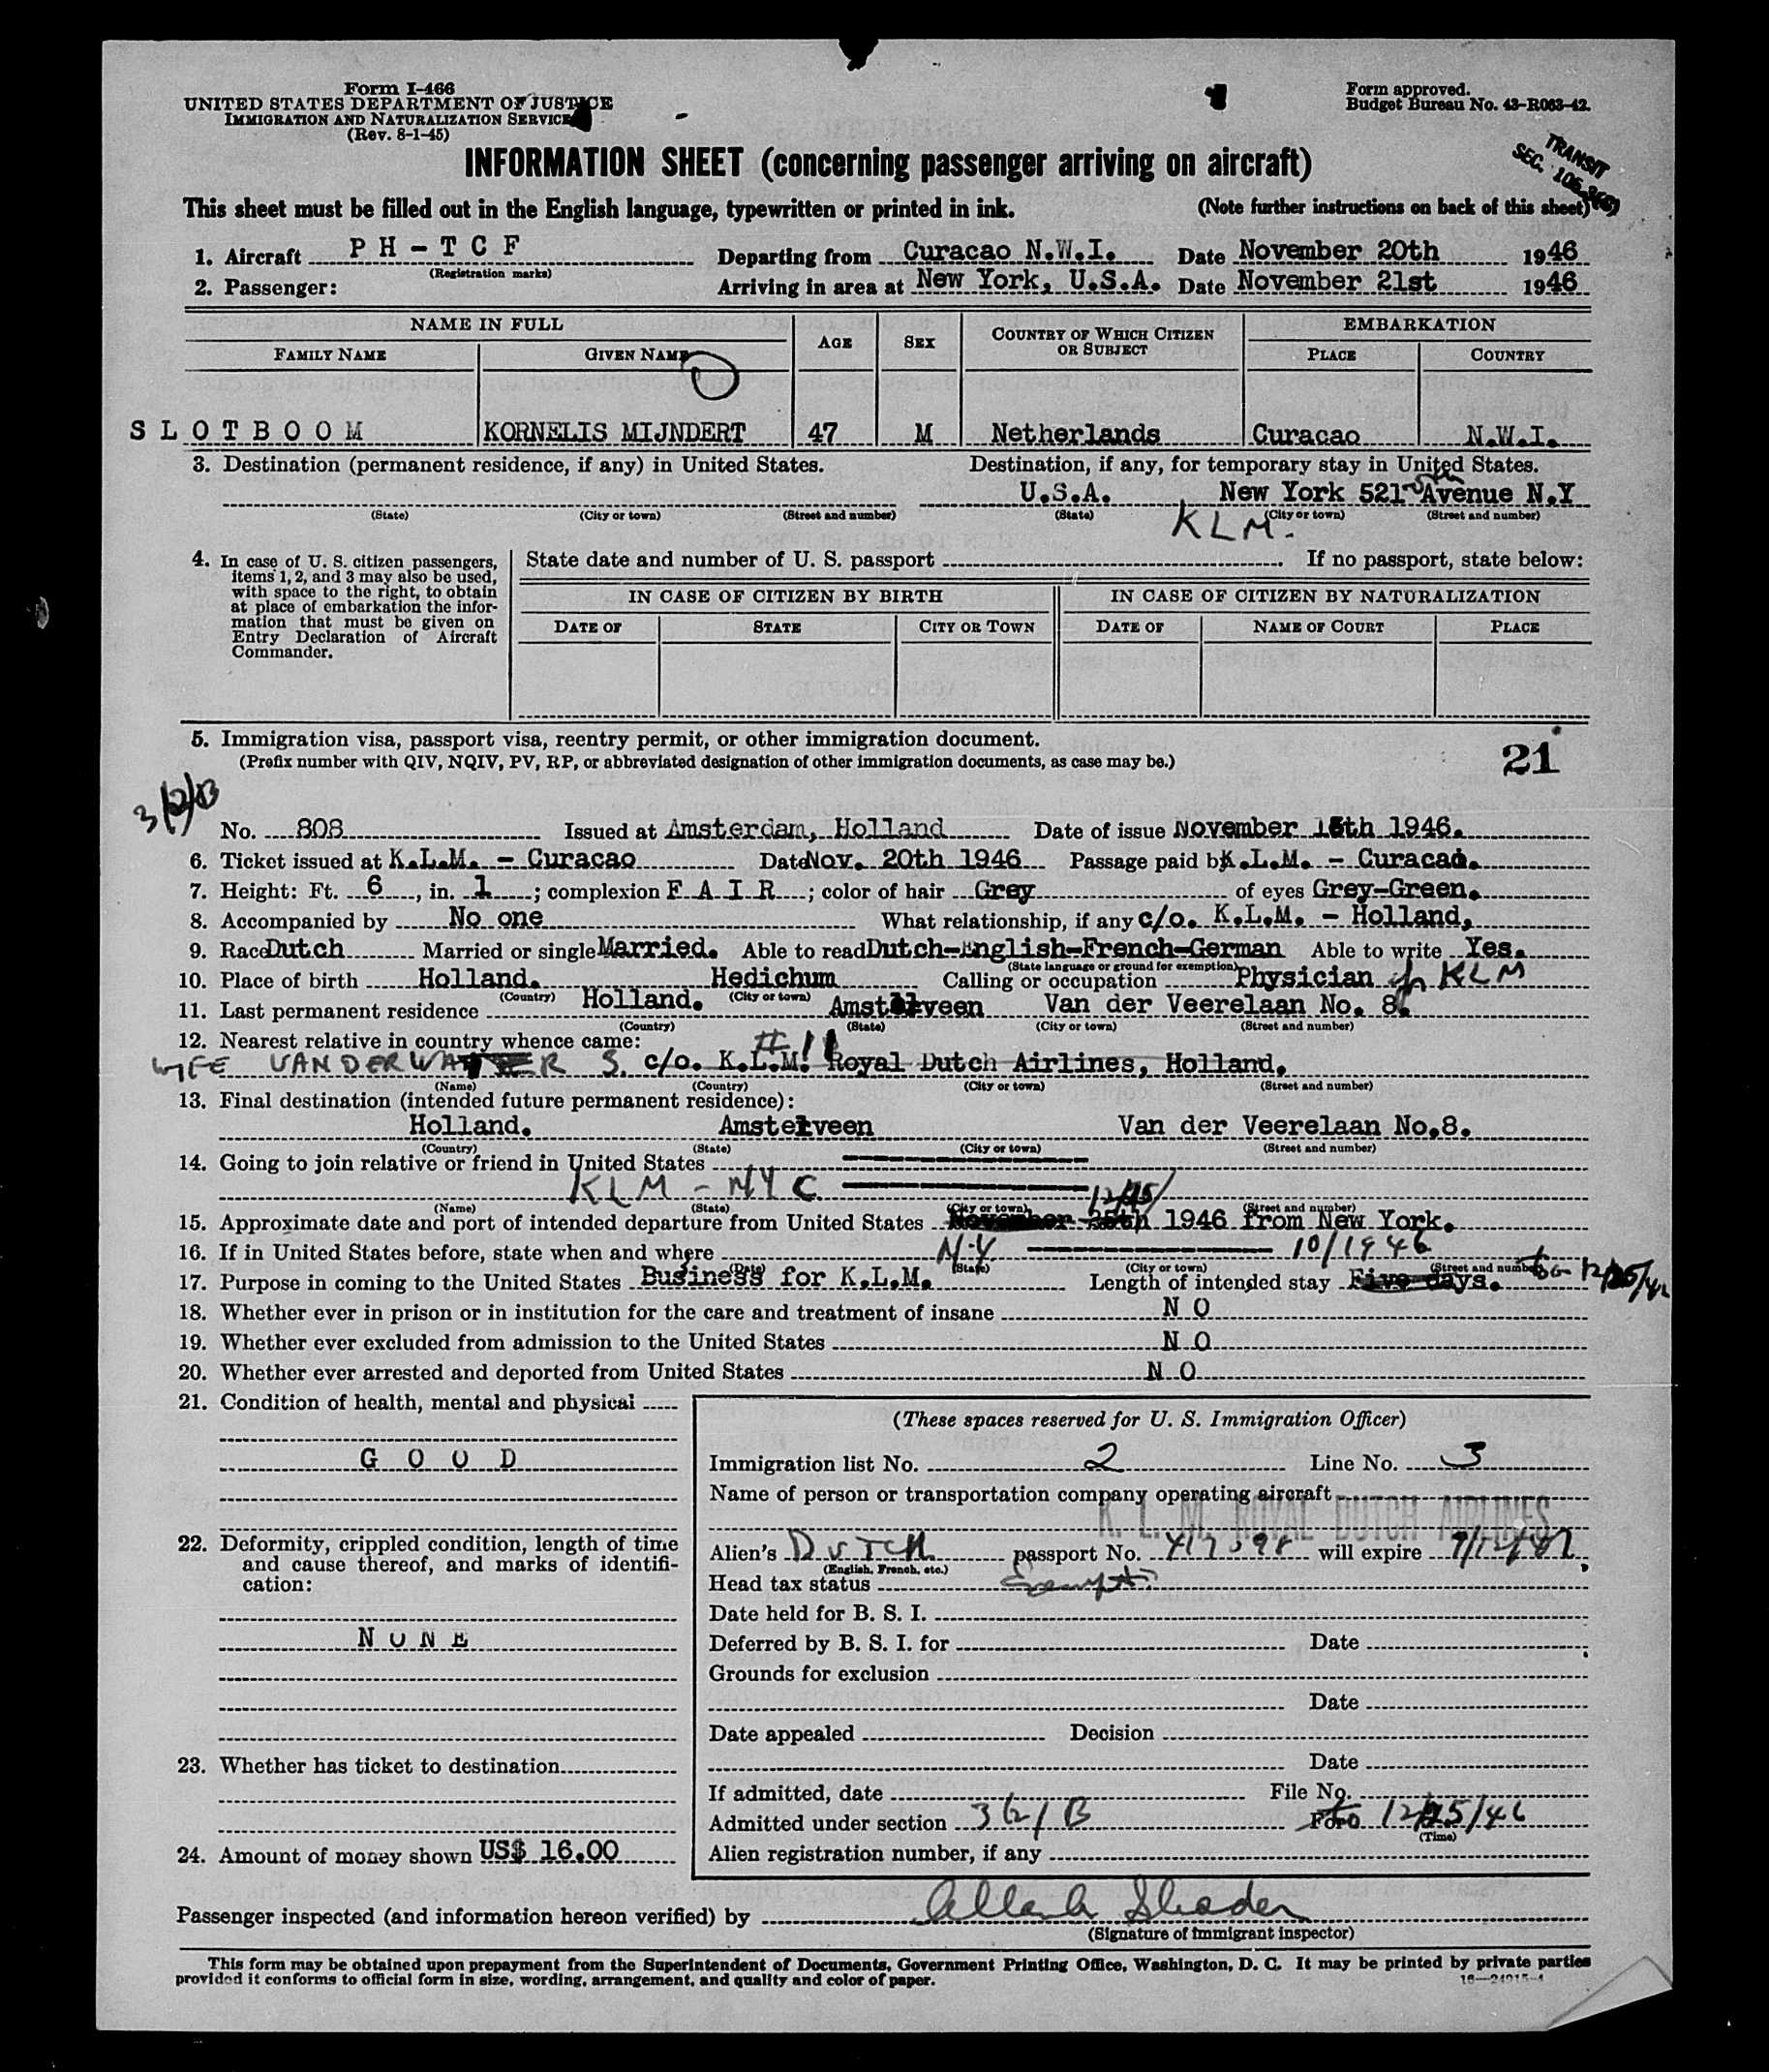 Form I-466
UNITED STATES DEPARTMENT OF JUSTICE
IMMIGRATION AND NATURALIZATION SERVICE
(Rev. 8-1-45)
Form approved.
Budget Bureau No. 43-R063-42.
TRANSIT
SEC. 105.3
INFORMATION SHEET (concerning passenger arriving on aircraft)
This sheet must be filled out in the English language, typewritten or printed in ink. (Note further instructions on back of this sheet)
1. Aircraft PH-TCF Departing from Curacao N.W.I. Date November 20th 1946
(Registration marks)
2. Passenger: Arriving in area at New York, U.S.A. Date November 21st 1946
NAME IN FULL AGE SEX COUNTRY OF WHICH CITIZEN OR SUBJECT EMBARKATION
FAMILY NAME GIVEN NAME PLACE COUNTRY
SLOTBOOM KORNELIS MIJNDERT 47 M Netherlands Curacao N.W.I.
3. Destination (permanent residence, if any) in United States. Destination, if any, for temporary stay in United States.
U.S.A. New York 521 Avenue N.Y
(State) (City or town) (Street and number) (State) (City or town) (Street and number)
KLM.
4. In case of U. S. citizen passengers, items 1, 2, and 3 may also be used, with space to the right, to obtain at place of embarkation the information that must be given on Entry Declaration of Aircraft Commander.
State date and number of U. S. passport If no passport, state below:
IN CASE OF CITIZEN BY BIRTH IN CASE OF CITIZEN BY NATURALIZATION
DATE OF STATE CITY OR TOWN DATE OF NAME OF COURT PLACE
5. Immigration visa, passport visa, reentry permit, or other immigration document.
(Prefix number with QIV, NQIV, PV, RP, or abbreviated designation of other immigration documents, as case may be.)
21
3(2)B
No. 808 Issued at Amsterdam, Holland Date of issue November 15th 1946.
6. Ticket issued at K.L.M. - Curacao Date Nov. 20th 1946 Passage paid by K.L.M. - Curacao.
7. Height: Ft. 6, in. 1; complexion FAIR; color of hair Grey of eyes Grey-Green.
8. Accompanied by No one What relationship, if any c/o. K.L.M. - Holland,
9. Race Dutch Married or single Married. Able to read Dutch-English-French-German Able to write Yes.
(State language or ground for exemption)
10. Place of birth Holland. Hedichum Calling or occupation Physician KLM
(Country) (City or town)
11. Last permanent residence Holland. Amstelveen Van der Veerelaan No. 8.
(Country) (State) (City or town) (Street and number)
12. Nearest relative in country whence came: #11
WIFE VAN DER WATER S. c/o. K.L.M. Royal Dutch Airlines, Holland.
(Name) (Country) (City or town) (Street and number)
13. Final destination (intended future permanent residence):
Holland. Amstelveen Van der Veerelaan No.8.
(Country) (State) (City or town) (Street and number)
14. Going to join relative or friend in United States
KLM - NYC
(Name) (State) (City or town) (Street and number)
12/15/
15. Approximate date and port of intended departure from United States November 25th 1946 from New York.
16. If in United States before, state when and where N.Y 10/1946
(Date) (State) (City or town) (Street and number)
17. Purpose in coming to the United States Business for K.L.M. Length of intended stay Five days. to 12/25/46
18. Whether ever in prison or in institution for the care and treatment of insane NO
19. Whether ever excluded from admission to the United States NO
20. Whether ever arrested and deported from United States NO
21. Condition of health, mental and physical
GOOD
22. Deformity, crippled condition, length of time and cause thereof, and marks of identification:
NONE
23. Whether has ticket to destination
24. Amount of money shown US$ 16.00
(These spaces reserved for U. S. Immigration Officer)
Immigration list No. 2 Line No. 3
Name of person or transportation company operating aircraft
K. L. M. ROYAL DUTCH AIRLINES
Alien's DUTCH passport No. will expire
(English, French, etc.)
Head tax status Exempt
Date held for B. S. I.
Deferred by B. S. I. for Date
Grounds for exclusion
Date
Date appealed Decision
Date
If admitted, date File No.
Admitted under section 3(2)B For to 12/25/46
(Time)
Alien registration number, if any
Passenger inspected (and information hereon verified) by
(Signature of immigrant inspector)
This form may be obtained upon prepayment from the Superintendent of Documents, Government Printing Office, Washington, D. C. It may be printed by private parties
provided it conforms to official form in size, wording, arrangement, and quality and color of paper.
16—24915-4